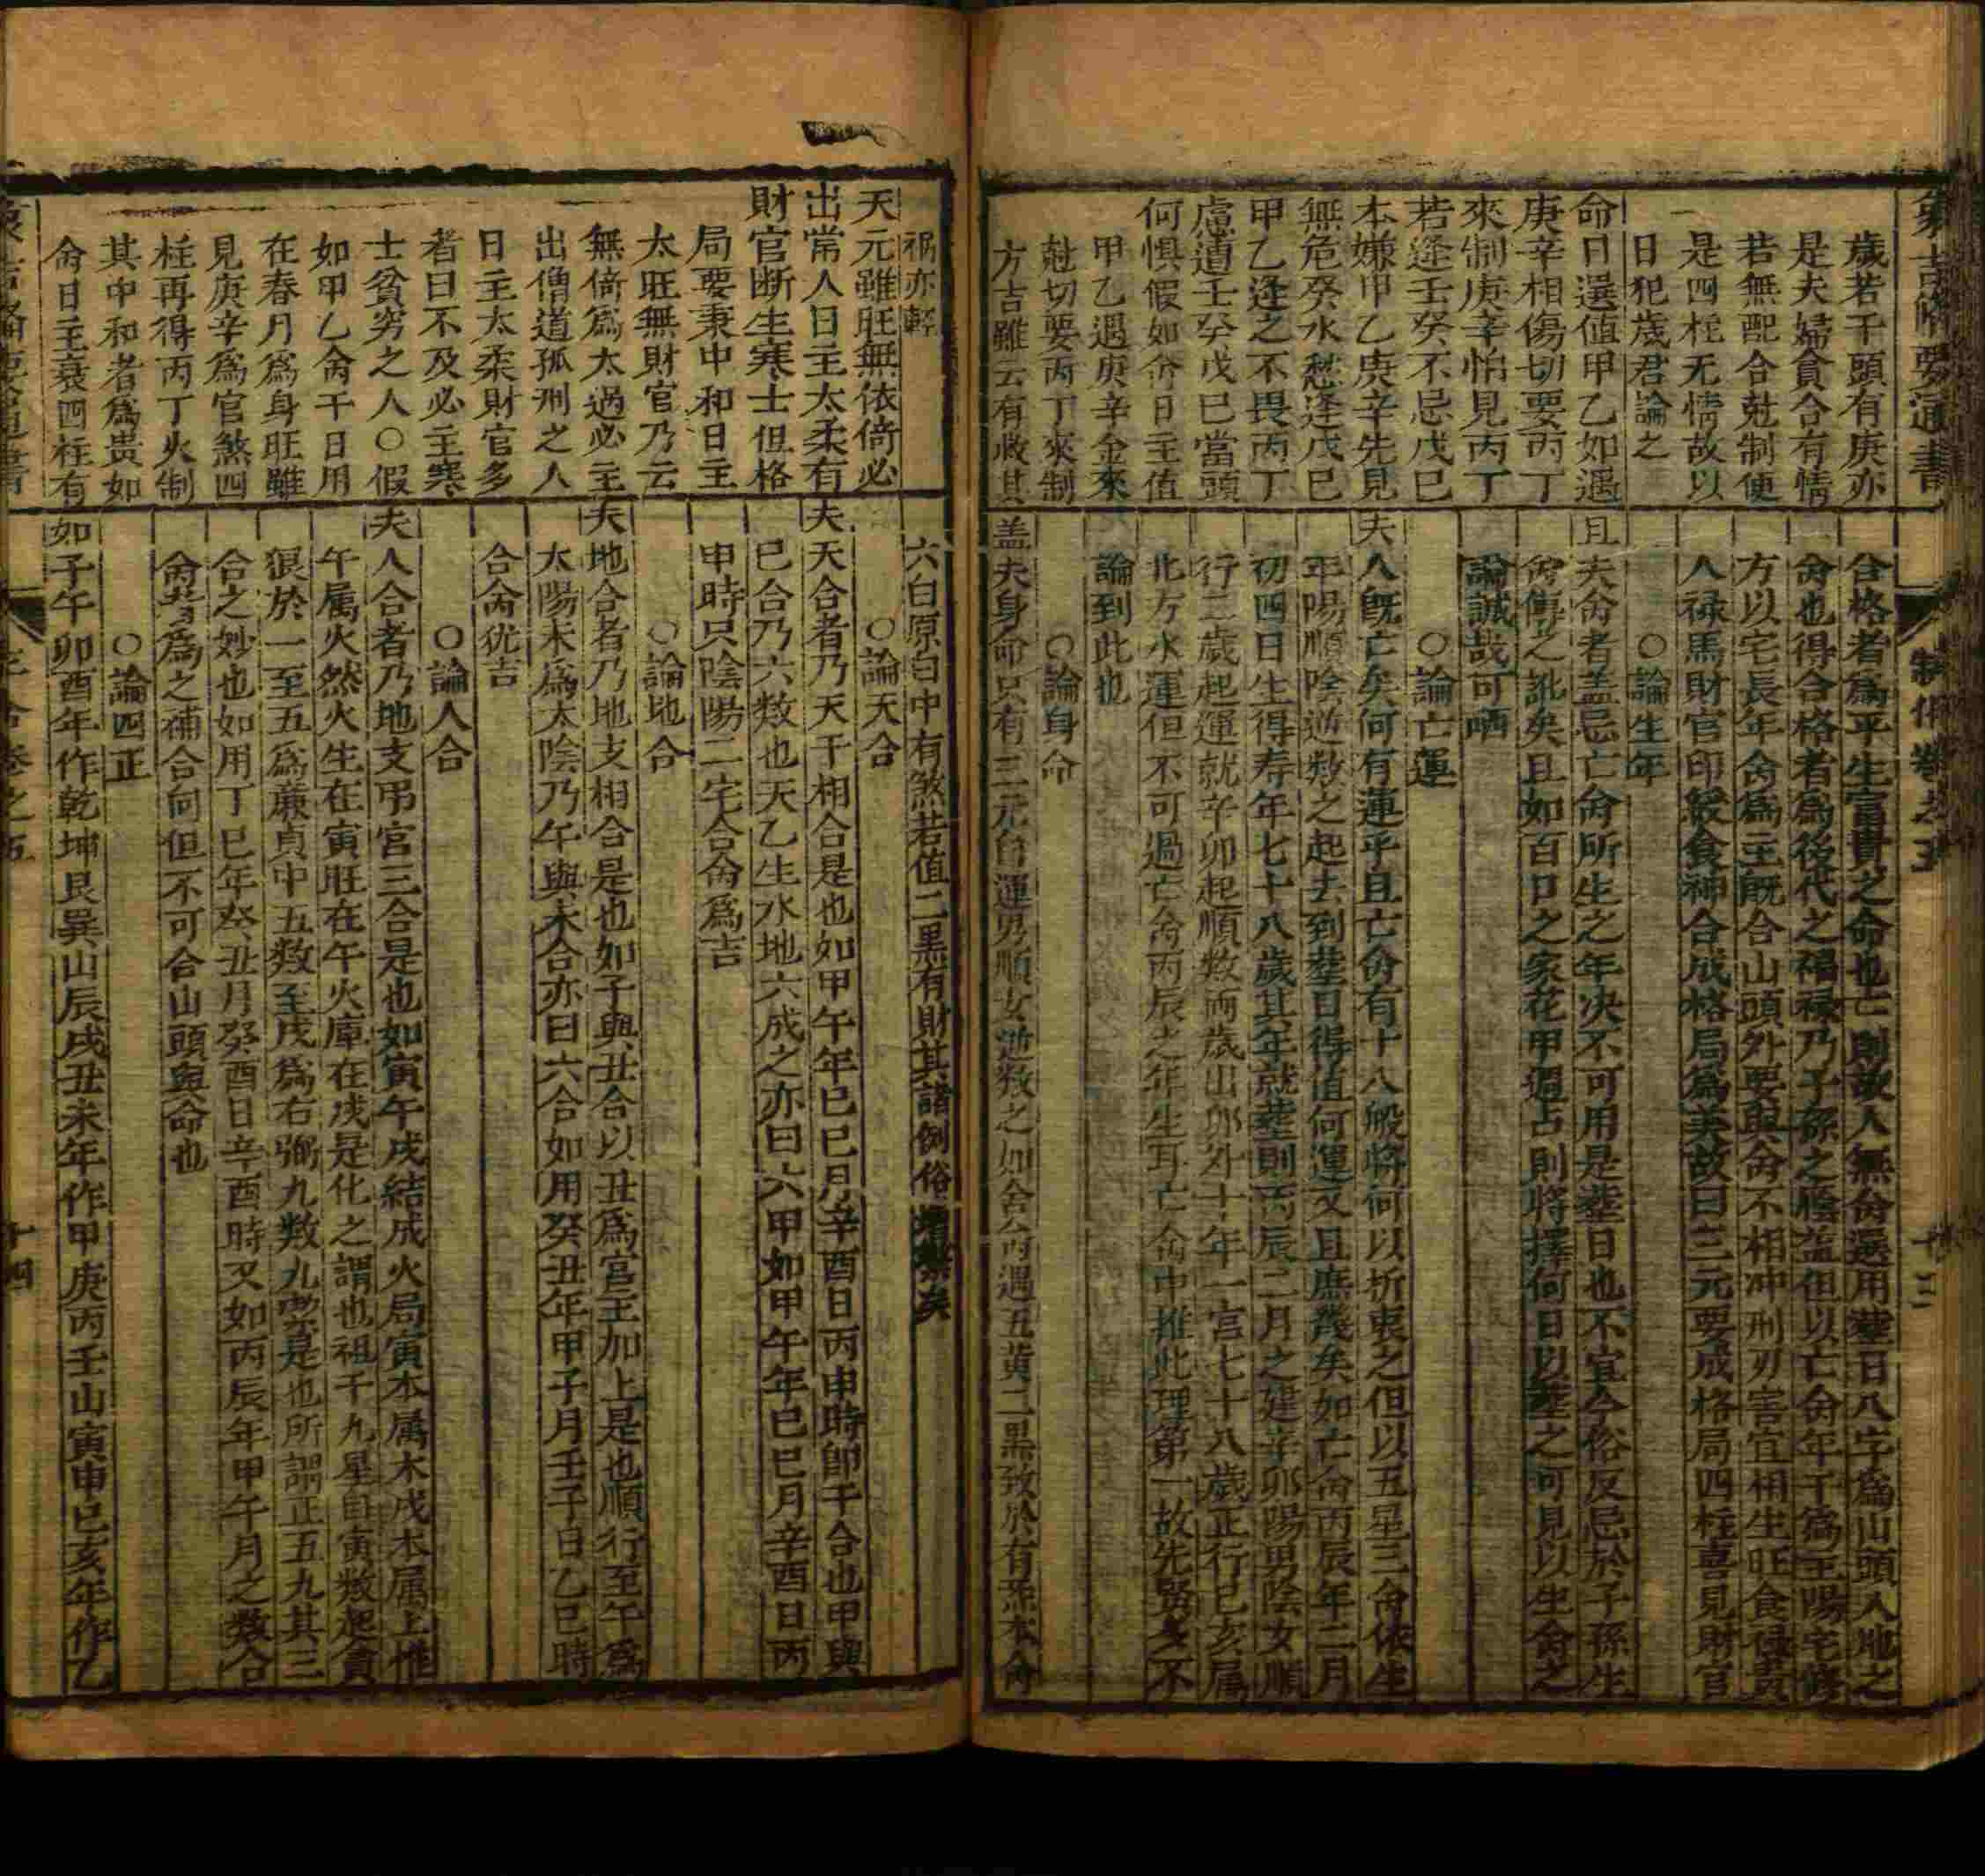 象吉備要通書
歲若干頭有庚亦
是夫婦貪合有情
若無配合尅制便
是四柱无情故以
日犯歲君論之
命日選值甲乙如遇
庚辛相傷切要丙丁
來制庚辛怕見丙丁
若逢壬癸不忌戊巳
本嫌甲乙庚辛先見
無危癸水愁逢戊巳
甲乙逢之不畏丙丁
慮遺壬癸戊巳當頭
何懼假如命日主值
甲乙遇庚辛金來
尅切要丙丁來制
方吉雖云有救其
合格者爲平生富貴之命也亡則故人無命選用塟日八字爲山頭入地之
命也得合格者爲後代之福祿乃子孫之廕益但以亡命年干爲主陽宅修
方以宅長年命爲主旣合山頭外要與命不相冲刑刃害宜相生旺食祿貴
人祿馬財官印綬食神合成格局爲美故曰三元要成格局四柱喜見財官
〇論生年
且夫命者盖忌亡命所生之年决不可用是塟日也不宜今俗反忌於子孫生
命傳之訛矣且如百口之家花甲週占則將擇何日以塟之可見以生命之
論誠哉可哂
〇論亡運
夫人旣亡矣何有運乎且亡命有十八般將何以折衷之但以五星三命依生
年陽順陰逆數之起去到塟日得值何運又且庶幾矣如亡命丙辰年二月
初四日生得寿年七十八歲其年就塟則丙辰二月之建辛卯陽男陰女順
行三歲起運就辛卯起順數兩歲出卯外十年一宮七十八歲正行巳亥属
北方水運但不可過亡命丙辰之年生耳亡命中推此理第一故先賢多不
論到此也
〇論身命
盖夫身命只有三元白運男順女逆數之如命命丙遇五黄二黑致於有
制化卷之五
六白原白中有煞若值二黑有財其諸例俗
〇論天合
夫天合者乃天干相合是也如甲午年巳巳月辛酉日丙申時卽干合也甲與
巳合乃六数也天乙生水地六成之亦曰六甲如甲午年巳巳月辛酉日丙
申時只陰陽二宅合命爲吉
〇論地合
夫地合者乃地支相合是也如子與丑合以丑爲宮主加上是也順行至午爲
太陽未爲太陰乃午與未合亦曰六合如用癸丑年甲子月壬子日乙巳時
合命犹吉
〇論人合
夫人合者乃地支弔宮三合是也如寅午戌結成火局寅本属木戌本属土惟
午属火然火生在寅旺在午火庫在戌是化之謂也祖于九星自寅数起貪
狠於一至五爲廉貞中五数至戌爲右弼九数九宮是也所謂正五九其三
合之妙也如用丁巳年癸丑月癸酉日辛酉時又如丙辰年甲午月之数合
命皆爲之補合向但不可合山頭與命也
〇論四正
如子午卯酉年作乾坤艮巽山辰戌丑未年作甲庚丙壬山寅申巳亥年作乙
禍亦輕
天元雖旺無依倚必
出常人日主太柔有
財官断生寒士但格
局要秉中和日主
太旺無財官乃云
無倚爲太過必主
出僧道孤刑之人
日主太柔財官多
者曰不及必主寒
士貧穷之人〇假
如甲乙命干日用
在春月爲身旺雖
見庚辛爲官煞四
柱再得丙丁火制
其中和者爲贵如
命日主衰四柱有
十四